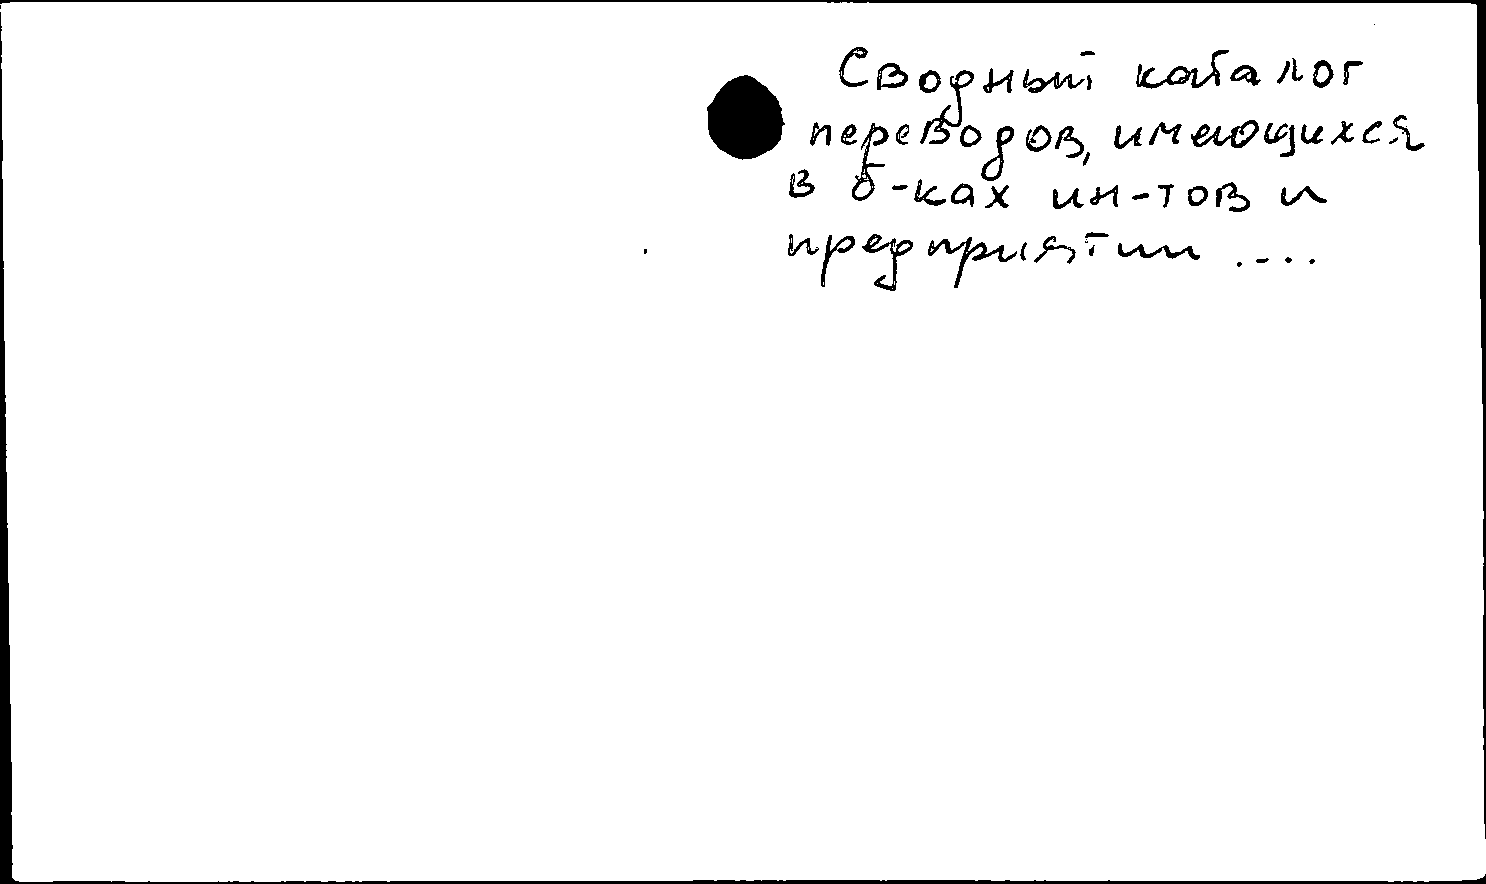 Сводный каталог
переводов, имеющихся
в б-ках ин-тов и
предприятии ....